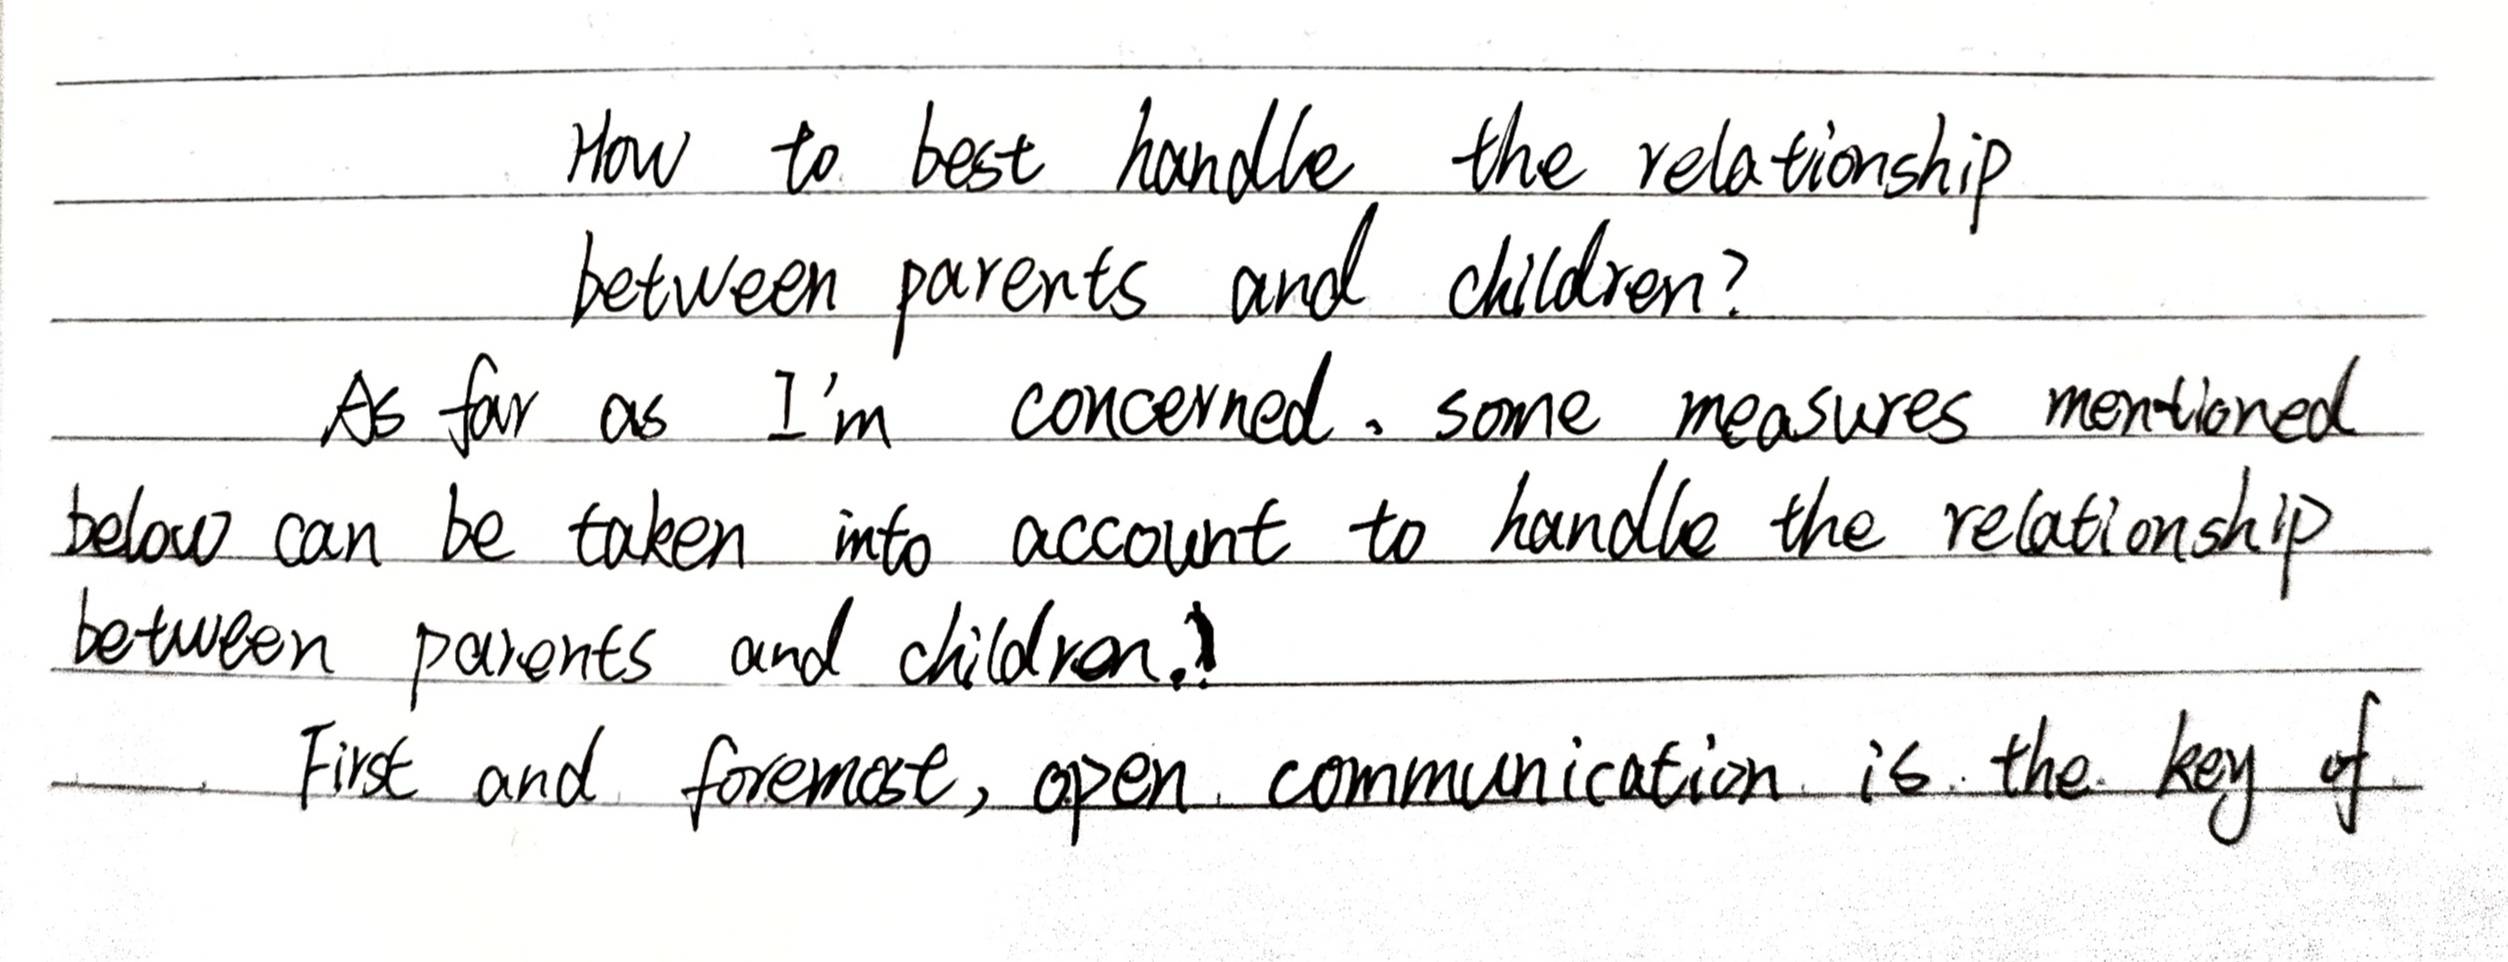 How to best handle the relationship
between parents and children?
As far as I'm concerned, some measures mentioned
below can be taken into account to handle the relationship
between parents and children.
First and foremost, open communication is the key of